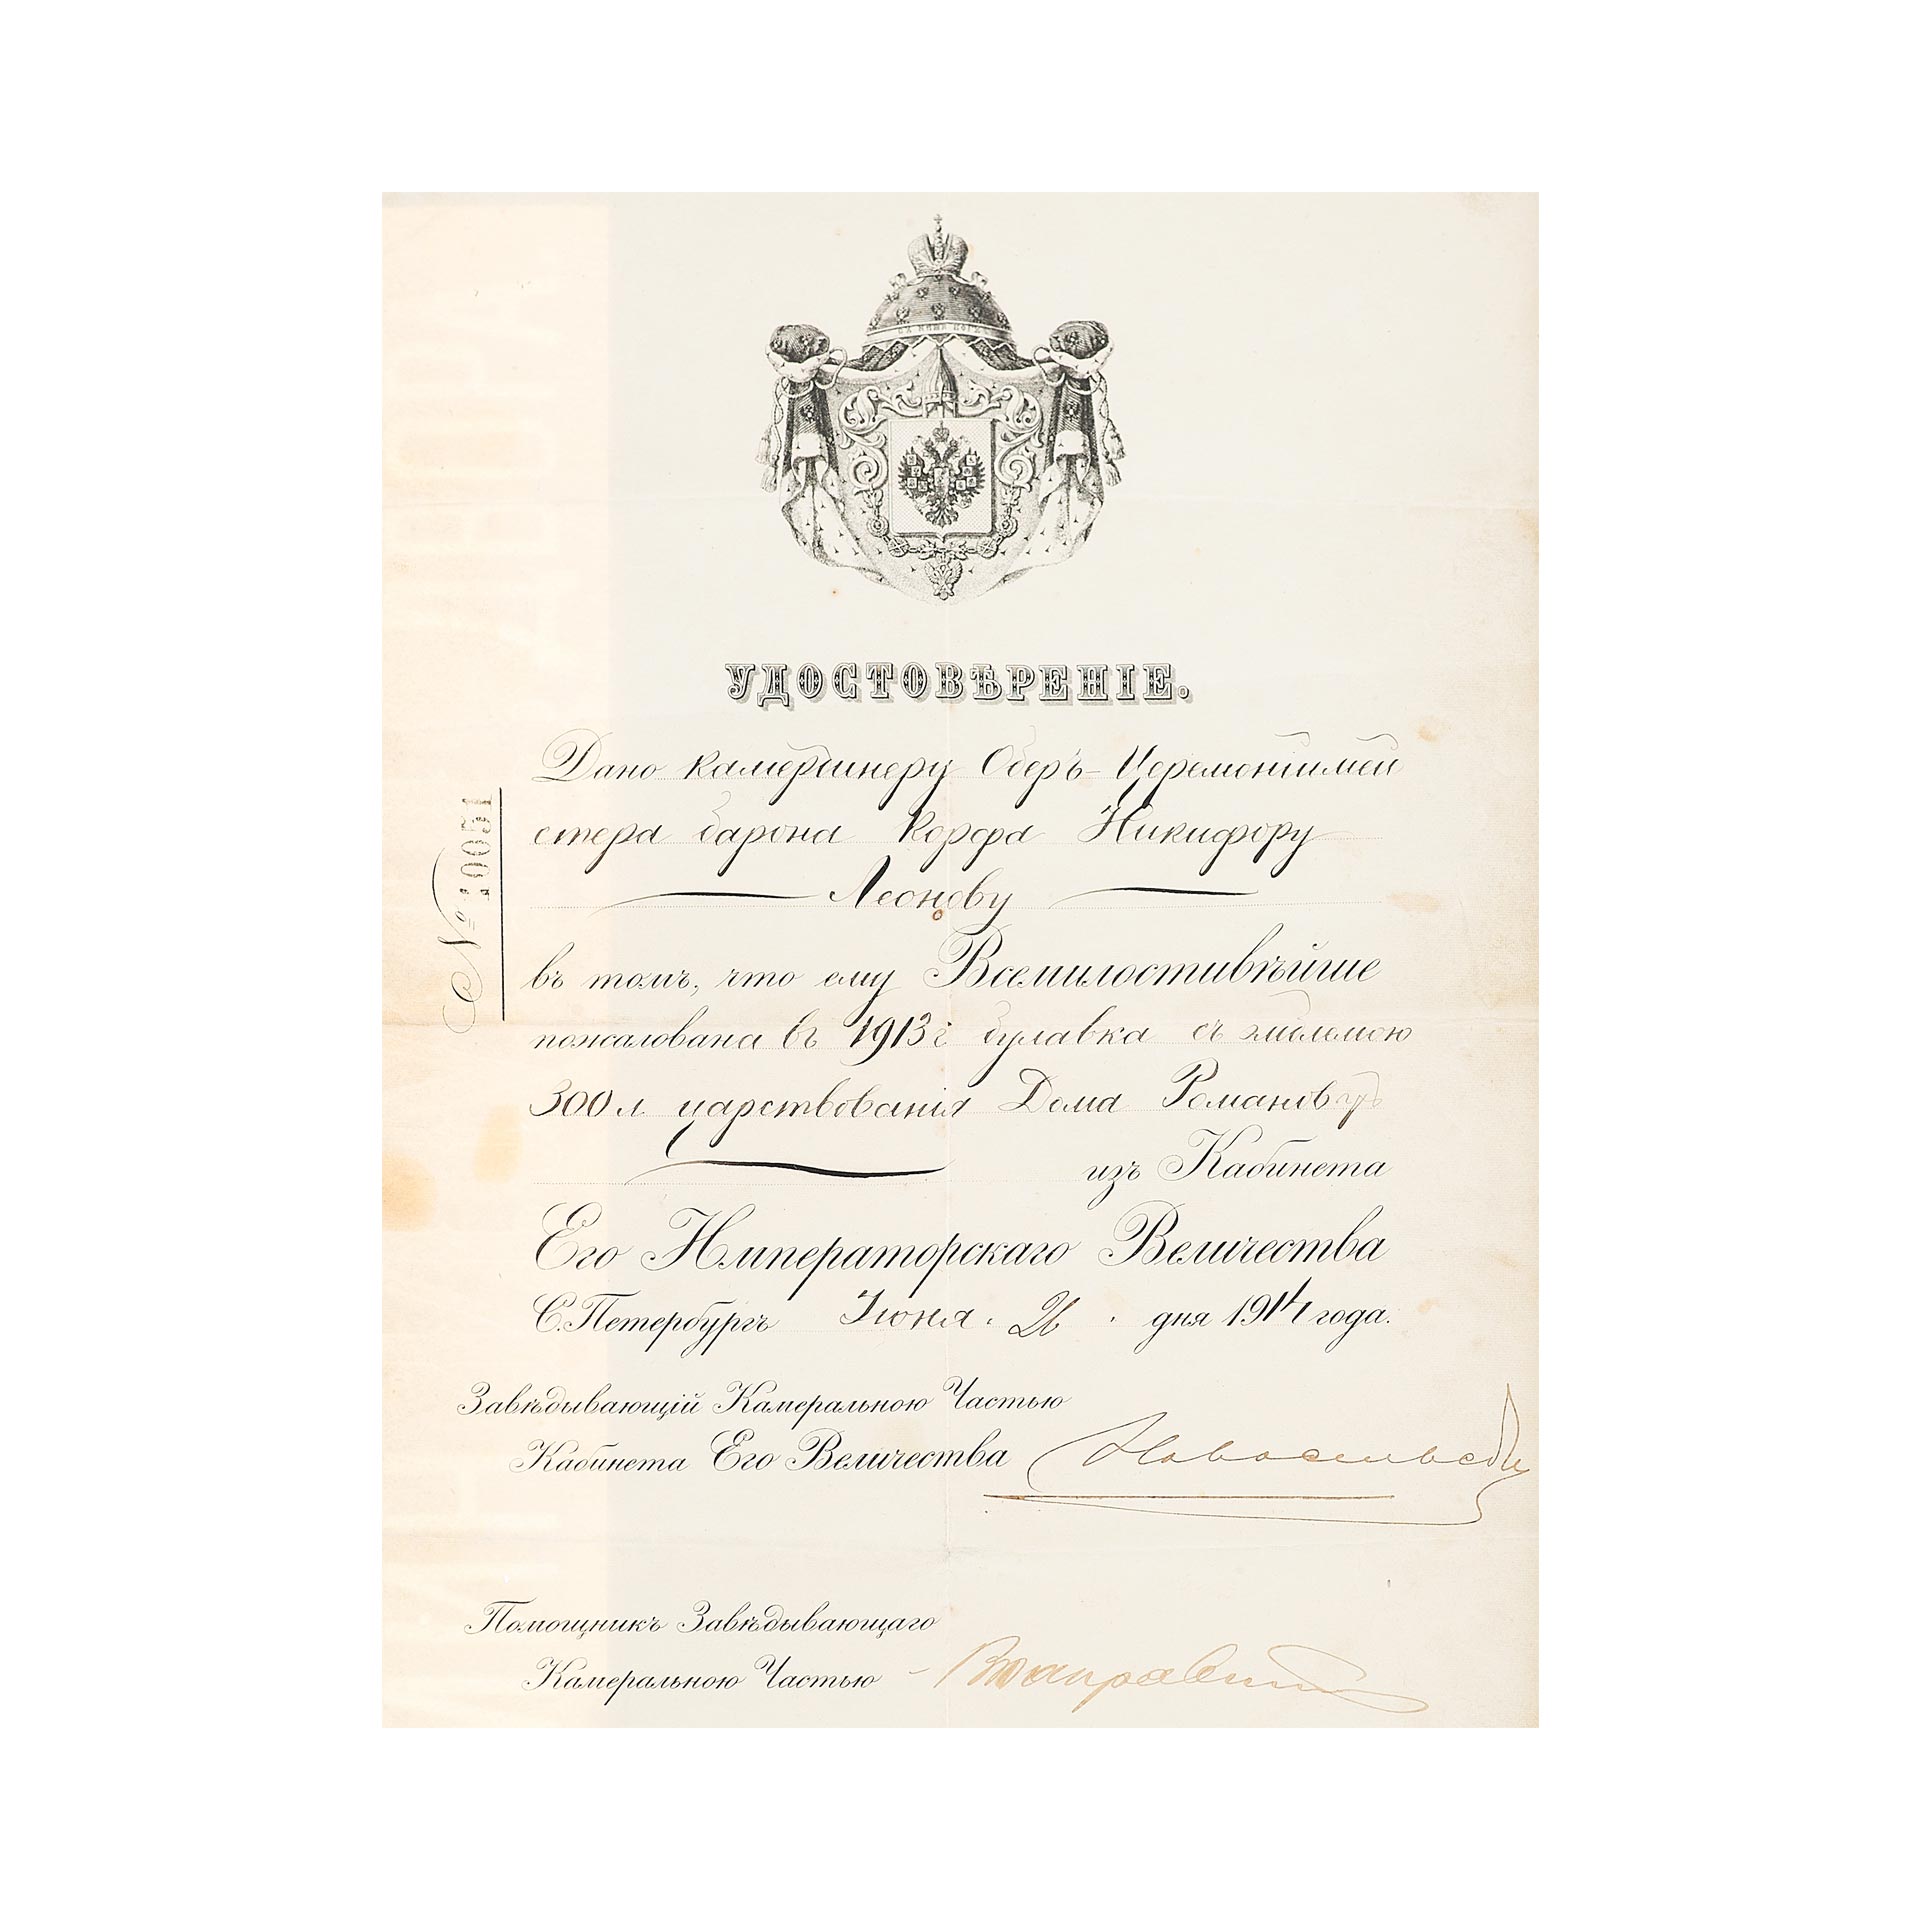 СЪ НАМИ БОГЪ
УДОСТОВѢРЕНІЕ.
№ 10051
Дано камердинеру Оберъ-Церемоніймей
стера барона Корфа Никифору
Леонову
въ томъ, что ему Всемилостивѣйше
пожалована въ 1913 г булавка съ эмблемою
300 л царствованія Дома Романовыхъ
изъ Кабинета
Его Императорскаго Величества
С.Петербургъ Іюня 26 дня 1914 года.
Завѣдывающій Камеральною Частью
Кабинета Его Величества Новосильцевъ
Помощникъ Завѣдывающаго
Камеральною Частью